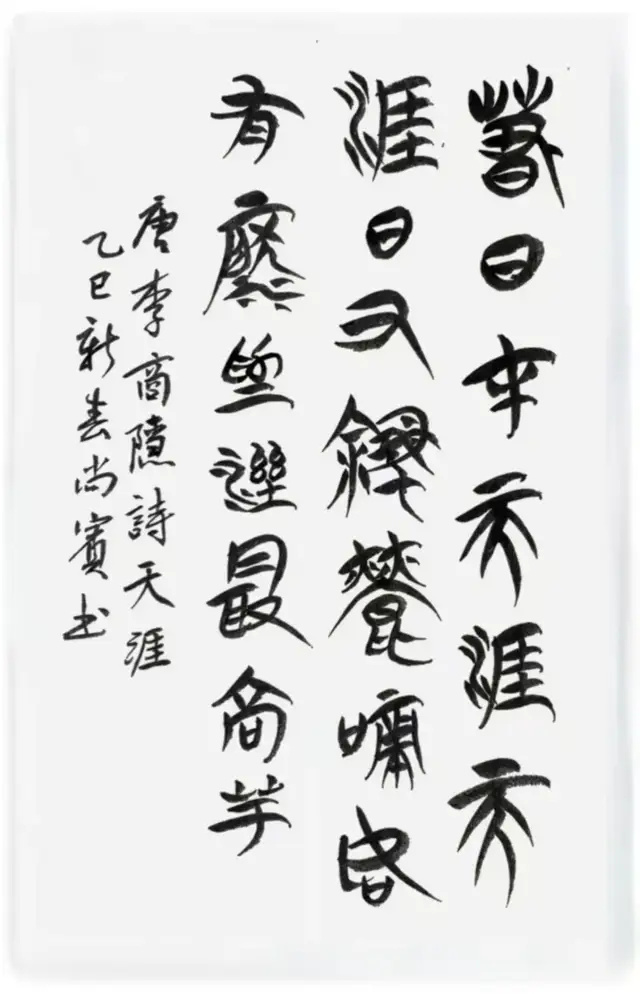 春日在天涯天
涯日又斜鶯啼如
有淚為溼最高花
唐李商隱詩天涯
乙巳新春尚賓书